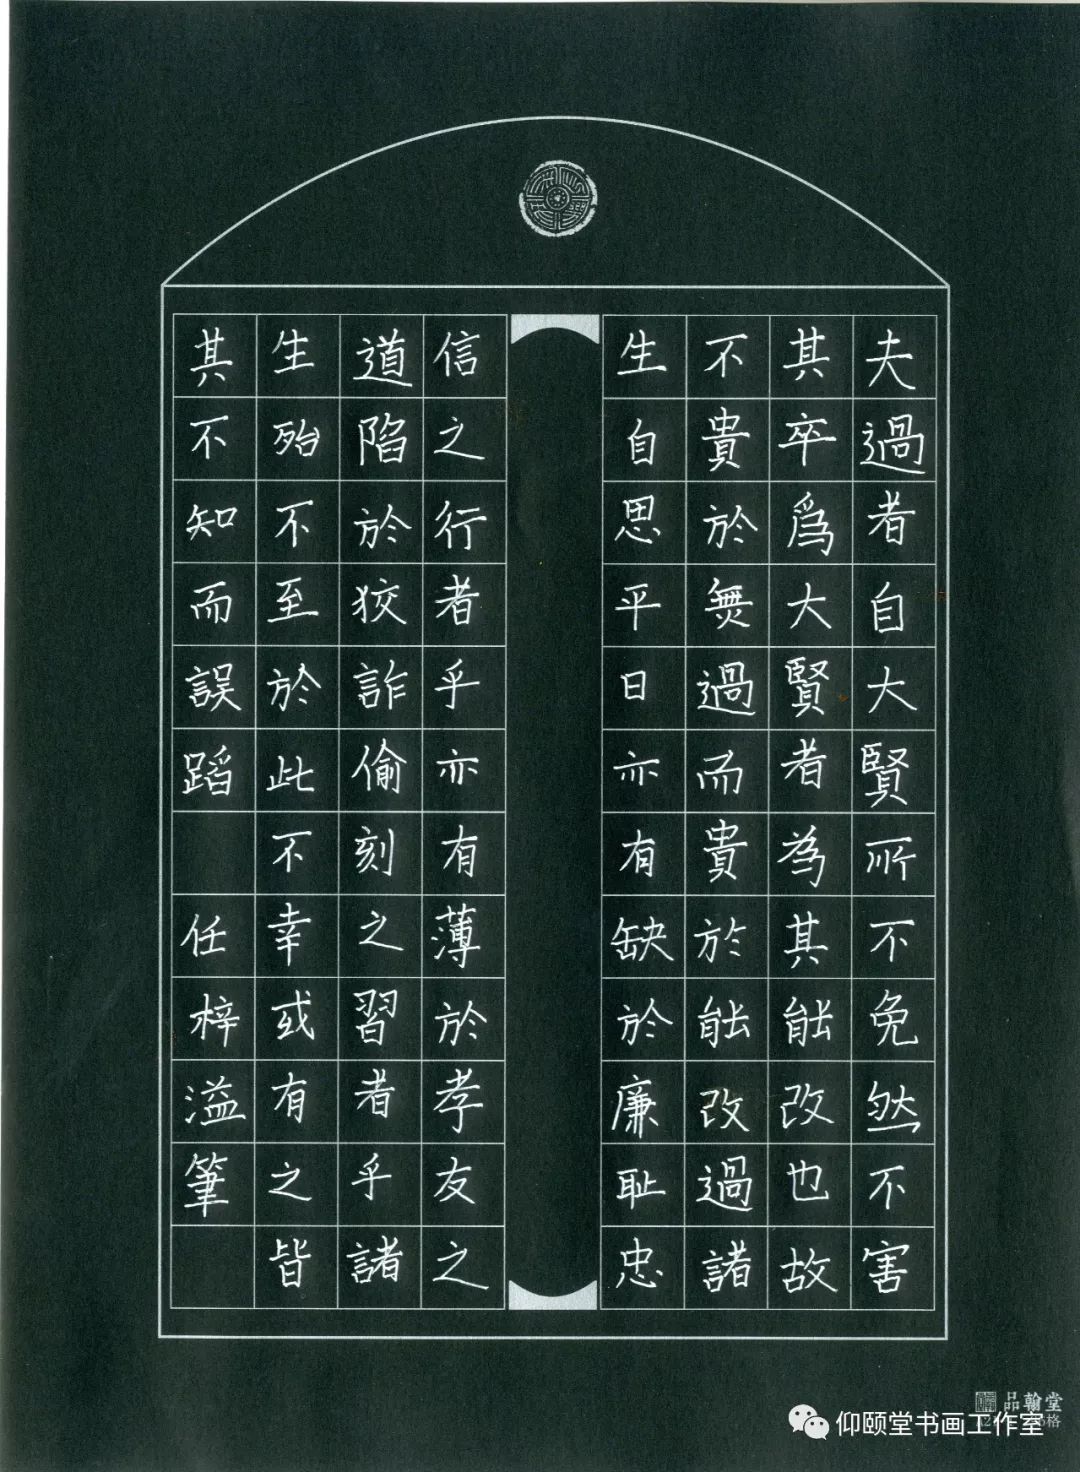 夫過者自大賢所不免然不害
其卒爲大賢者為其能改也故
不貴於無過而貴於能改過諸
生自思平日亦有缺於廉恥忠
信之行者乎亦有薄於孝友之
道陷於狡詐偷刻之習者乎諸
生殆不至於此不幸或有之皆
其不知而誤蹈
任梓溢筆
品翰堂
仰颐堂书画工作室